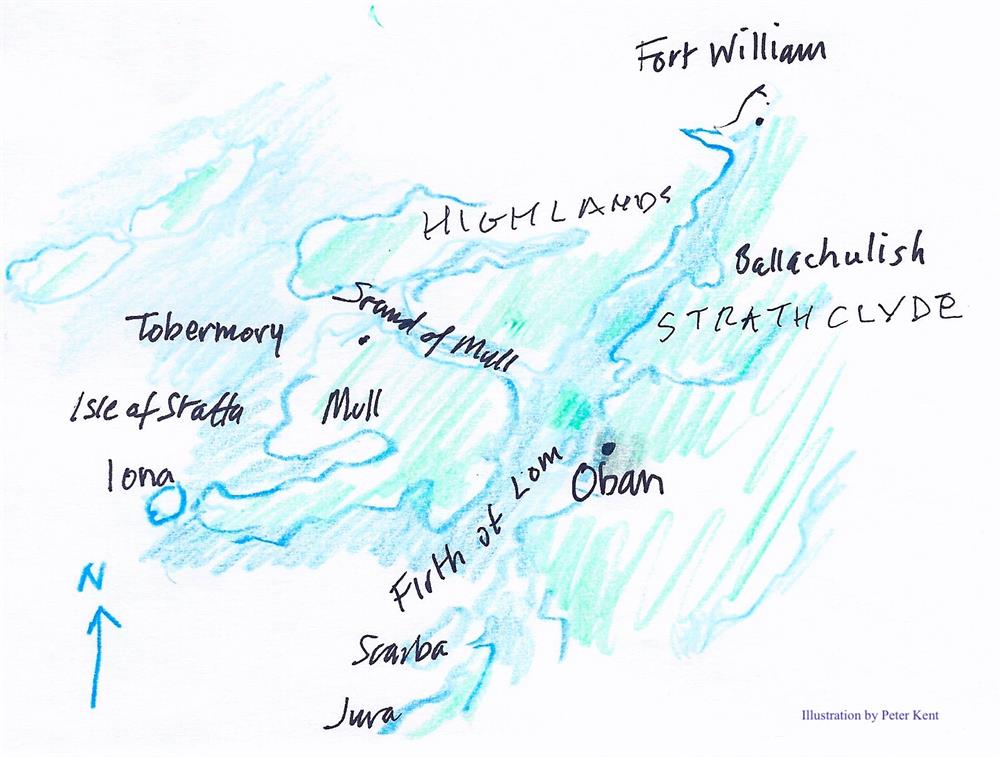 Fort William
HIGHLANDS
Ballachulish
STRATHCLYDE
Sound of Mull
Tobermory
Isle of Staffa
Mull
Iona
Oban
Firth of Lorn
N
Scarba
Jura
Illustration by Peter Kent